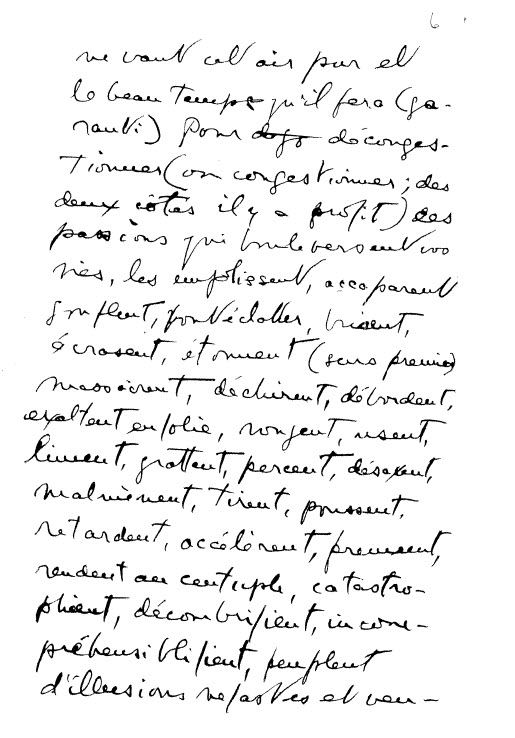 6
ne vaut cet air pur et
le beau temps qu'il fera (ga-
ranti) pour déconges-
tionner (ou congestionner; des
deux côtés il y a profit) ces
passions qui bouleversent vos
vies, les emplissent, accaparent
gonflent, font éclater, brisent,
écrasent, étonnent (sens premier)
massacrent, déchirent, débordent,
exaltent en folie, rongent, usent,
liment, grattent, percent, désaxent,
malmènent, tirent, poussent,
retardent, accélèrent, prennent,
rendent au centuple, catastro-
phient, décombrifient, incom-
préhensiblifient, peuplent
d'illusions néfastes et ven-